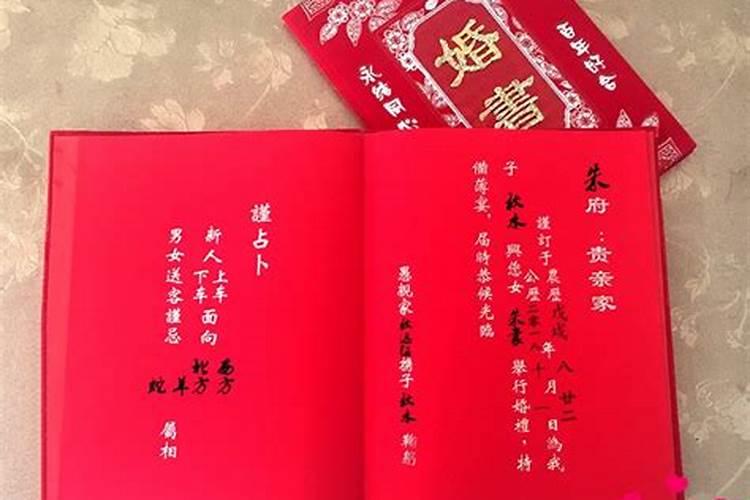 百年好合
婚書
永结同心
朱府：贵亲家
謹訂于農歷戊戌年八月廿二日為我
公歷二零一八 十 一
子 秋水 與您女 舉行婚禮，特
備薄宴，届時恭候光臨
愚親家 秋 携子 秋水 鞠躬
謹占卜
新人上车下车面向 西方 北方
男女送客謹忌 羊 蛇 屬相